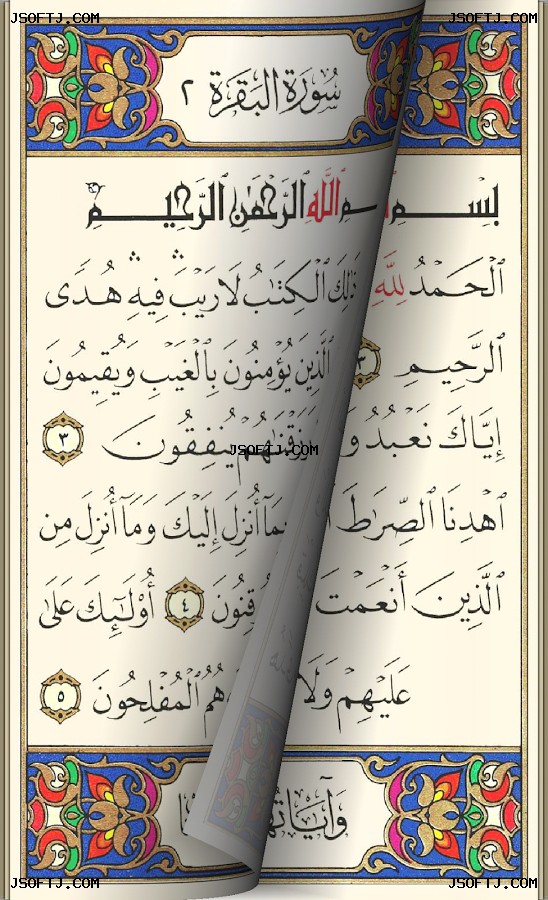 JSOFTJ.COM JSOFTJ.COM
سُورَةُ البَقَرَةِ ٢
بِسْمِ ٱللَّهِ ٱلرَّحْمَٰنِ ٱلرَّحِيمِ
ٱلْحَمْدُ لِلَّهِ ذَٰلِكَ ٱلْكِتَٰبُ لَا رَيْبَ ۛ فِيهِ ۛ هُدًى
ٱلرَّحِيمِ ٣ ٱلَّذِينَ يُؤْمِنُونَ بِٱلْغَيْبِ وَيُقِيمُونَ
إِيَّاكَ نَعْبُدُ وَ رَزَقْنَٰهُمْ يُنفِقُونَ ٣
JSOFTJ.COM
ٱهْدِنَا ٱلصِّرَٰطَ بِمَآ أُنزِلَ إِلَيْكَ وَمَآ أُنزِلَ مِن
ٱلَّذِينَ أَنْعَمْتَ قِنُونَ ٤ أُو۟لَٰٓئِكَ عَلَىٰ
عَلَيْهِمْ وَلَا هُمُ ٱلْمُفْلِحُونَ ٥
وَآيَاتُهَا
JSOFTJ.COM JSOFTJ.COM